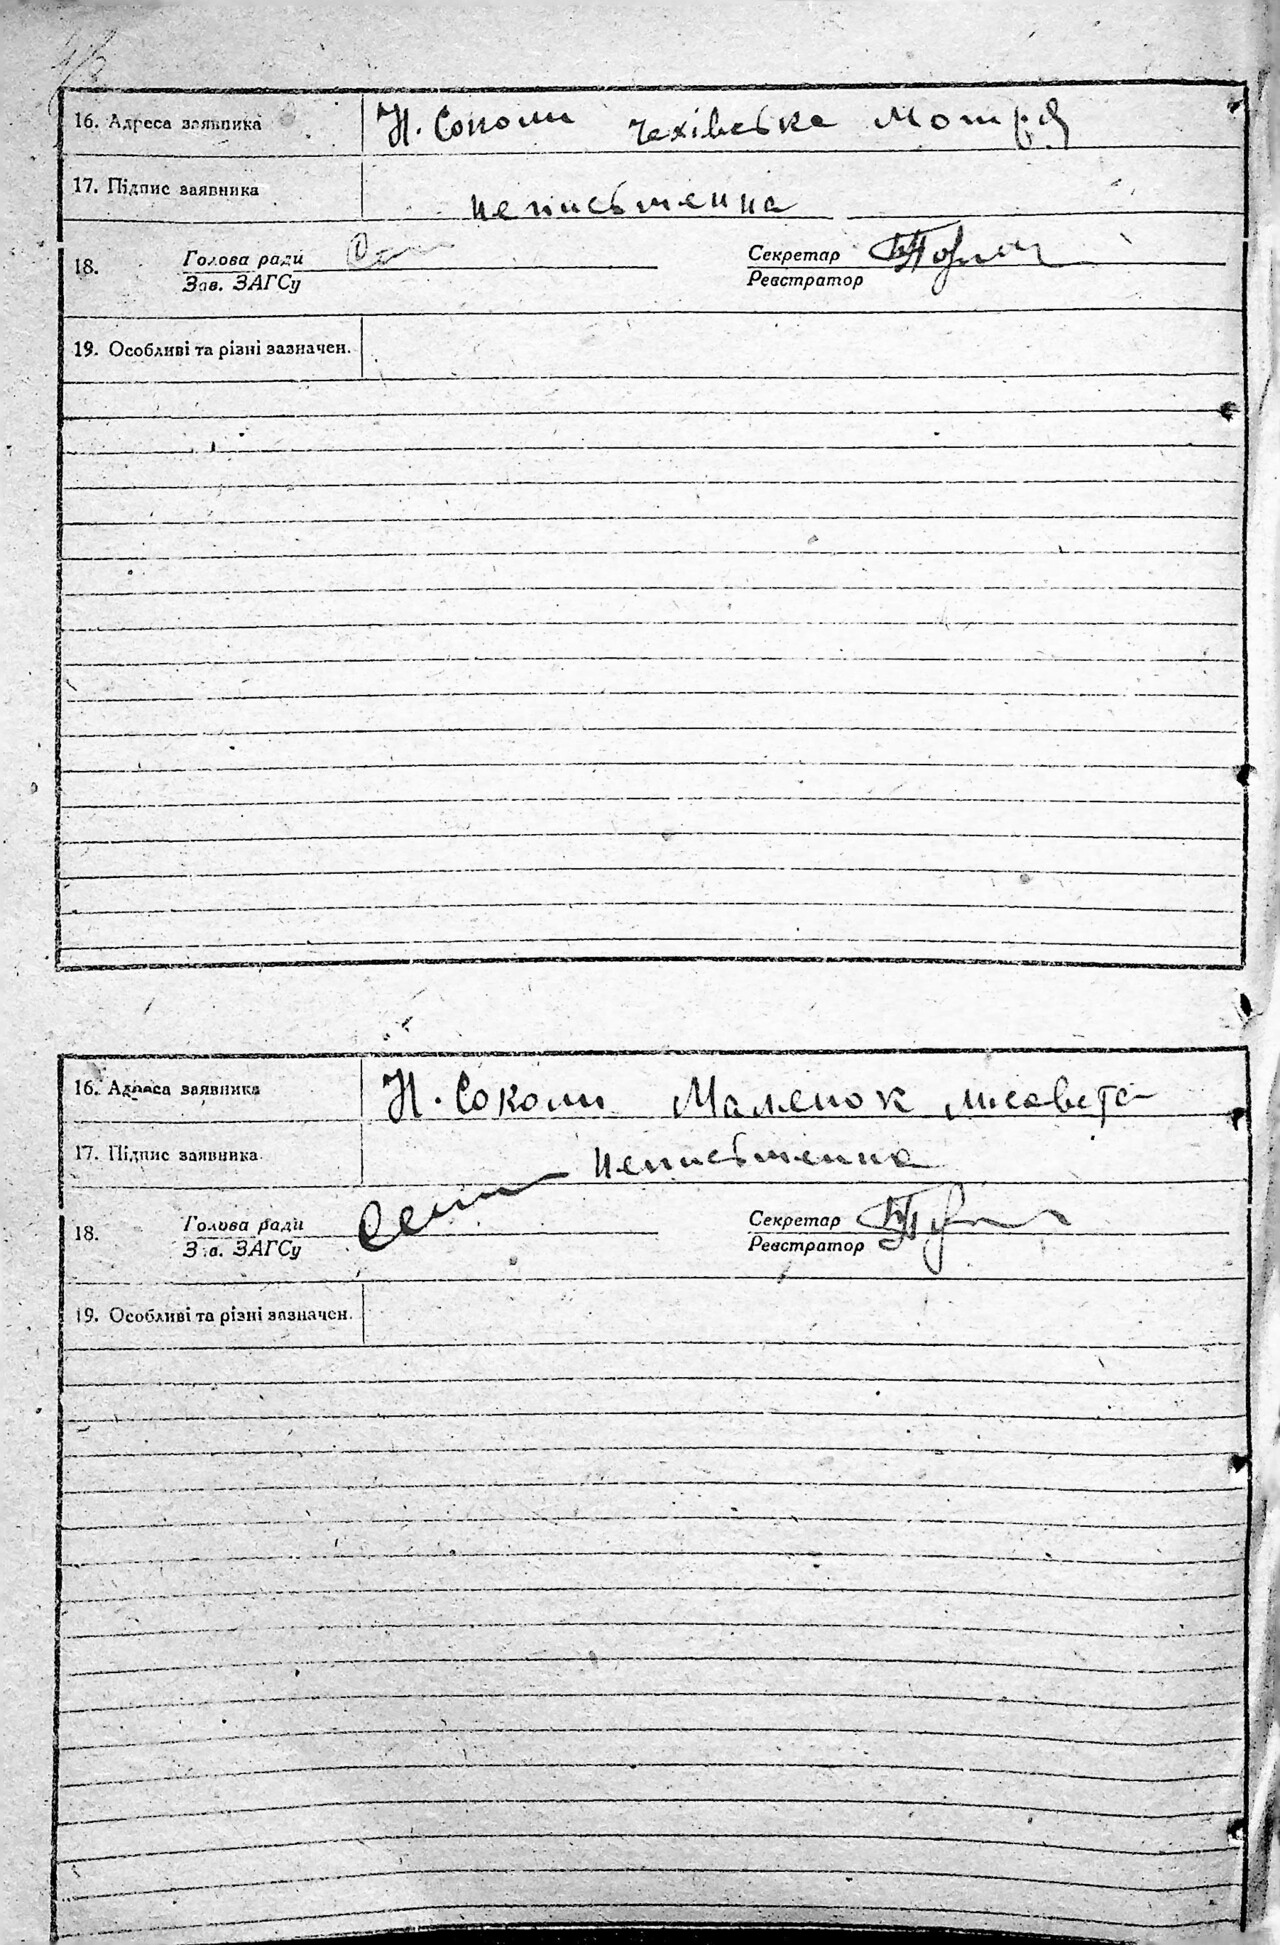 16. Адреса заявника Н. Соколи Чехівська Мотря
17. Підпис заявника неписьменна
18. Голова ради Секретар
Зав. ЗАГСу Реєстратор
19. Особливі та різні зазначен.
16. Адреса заявника Н. Соколи Маленок лисавета
17. Підпис заявника неписьменна
18. Голова ради Секретар
Зав. ЗАГСу Реєстратор
19. Особливі та різні зазначен.